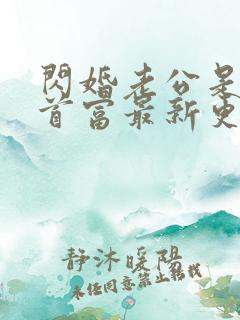 閃婚老公是
首富最新更
静沐暖阳
未经同意禁止转载